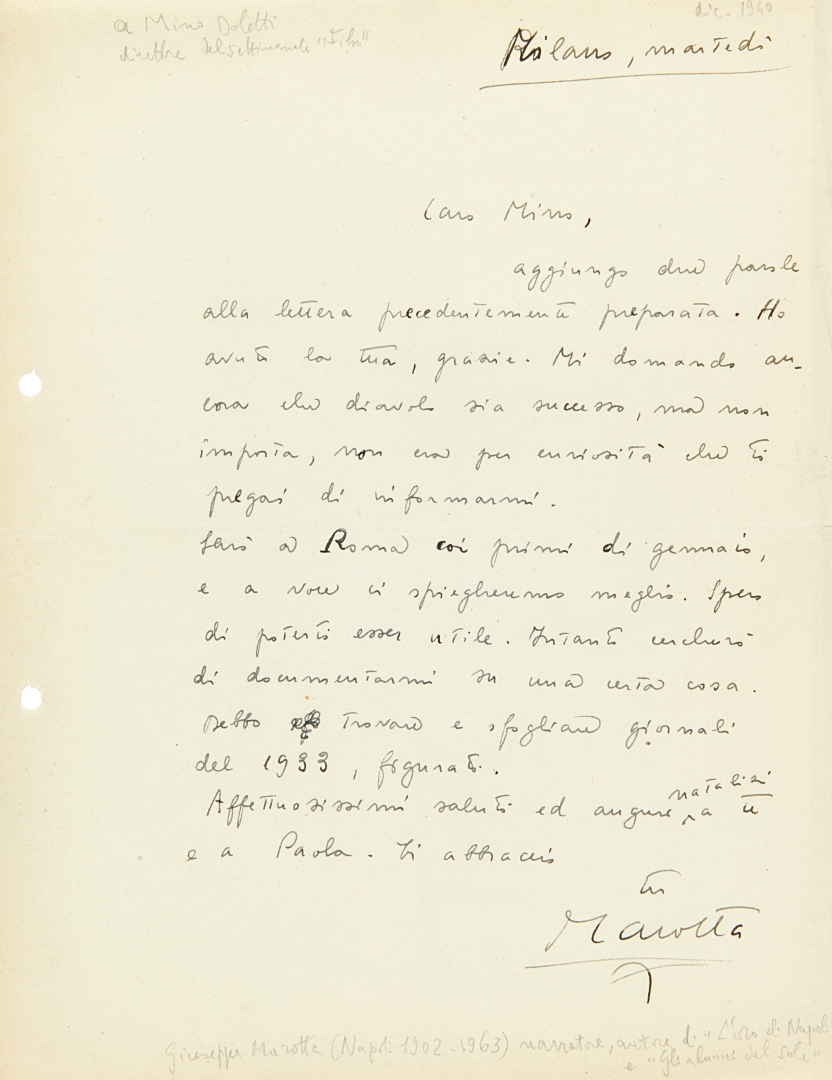 a Mino Doletti
direttore del settimanale "Film"
dic. 1940
Milano, martedì
Caro Mino,
aggiungo due parole
alla lettera precedentemente preparata. Ho
avuto la tua, grazie. Mi domando an-
cora che diavolo sia successo, ma non
importa, non era per curiosità che ti
pregai di informarmi.
Sarò a Roma coi primi di gennaio,
e a voce ci spiegheremo meglio. Spero
di poterti esser utile. Intanto cercherò
di documentarmi su una certa cosa.
Debbo trovare e sfogliare giornali
del 1933, figurati.
natalizi
Affettuosissimi saluti ed auguri a te
e a Paola. Ti abbraccio
tuo
Marotta
Giuseppe Marotta (Napoli 1902-1963) narratore, autore di "L'oro di Napoli"
e "Gli alunni del sole"